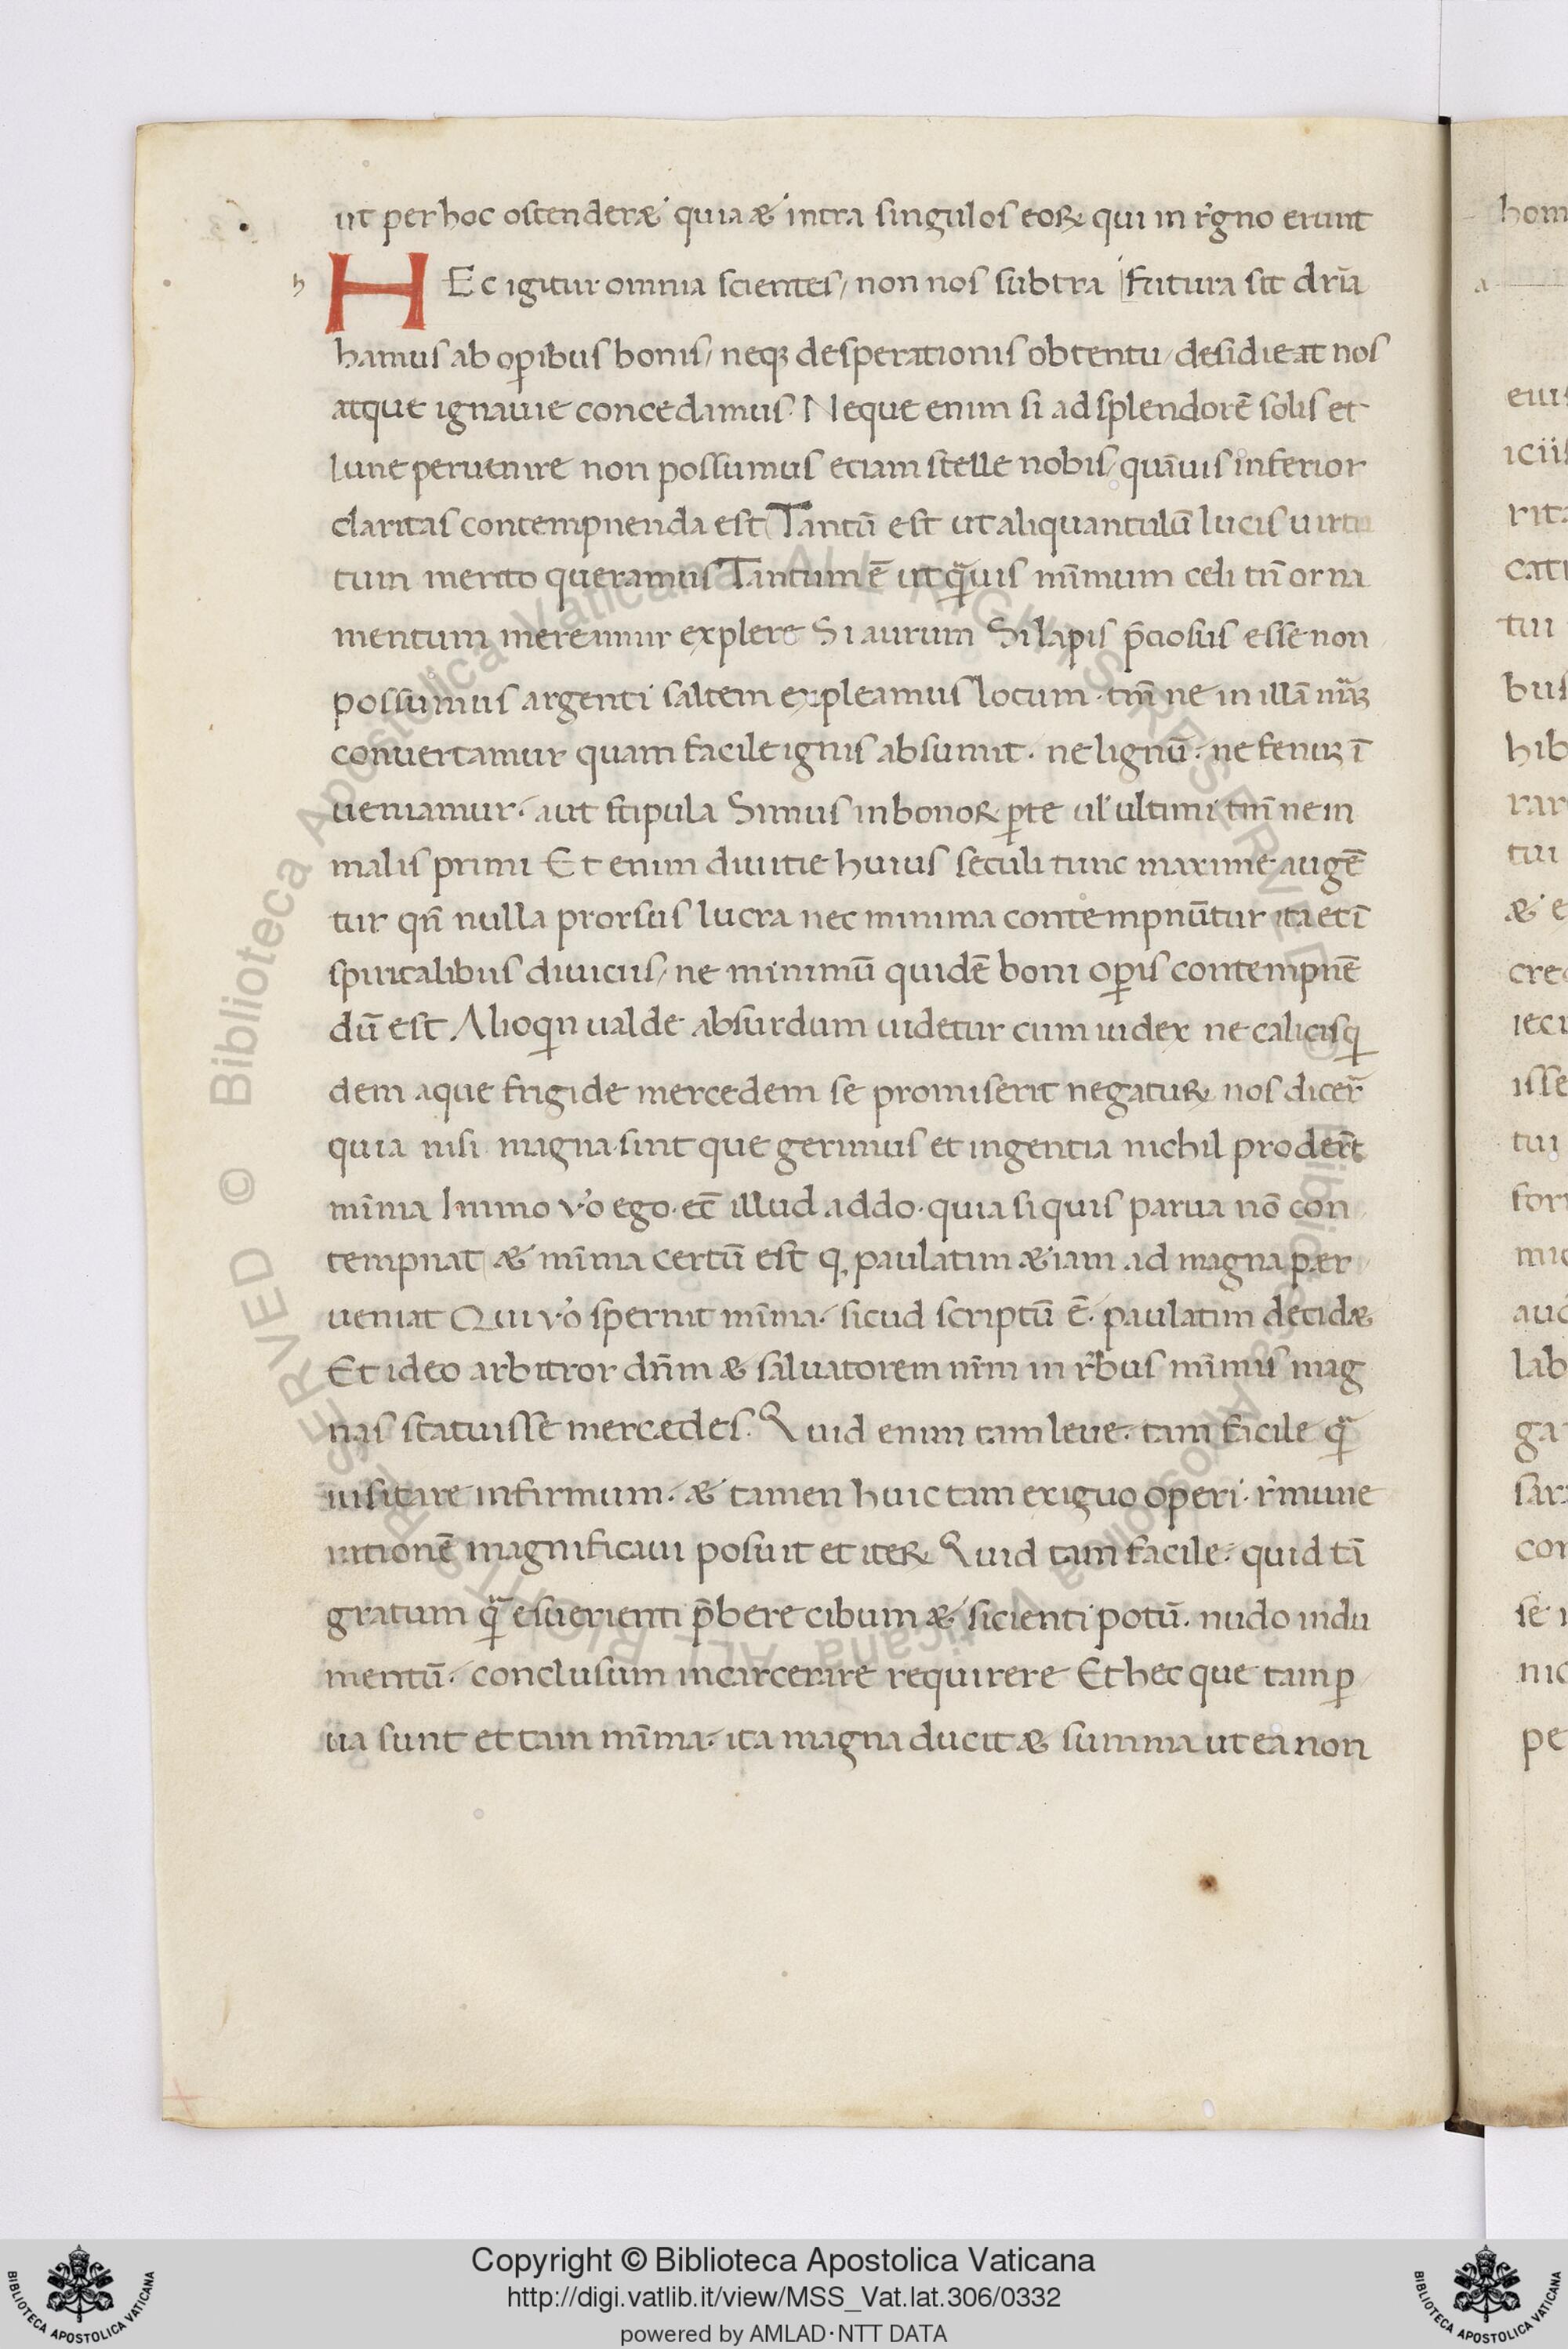 ut per hoc ostenderæ quia æ intra singulos eoꝝ qui in r̃gno erunt
h HEc igitur omnia scientes / non nos subtra futura sit dr̃ia
hamus ab oꝑibus bonis / neqꝫ desperationis obtentu / desidie at nos
atque ignauie concedamus. Neque enim si ad splendorē solis et
lune peruenire non possumus etiam stelle nobis / quãuis inferior
claritas contempnenda est Tantū est ut aliquantulū lucis uirtu
tum merito queramus Tantum ē ut qᷓuis mĩmum celi tñ orna
mentum mereamur explere Si aurum Si lapis p̃ciosus esse non
possumus argenti saltem expleamus locum. tm̃ ne in illã mãꝫ
conuertamur quam facile ignis absumit. ne lignū. ne fenuꝫ ĩ
ueniamur. aut stipula Simus in bonoꝝ ꝑte ul' ultimi tm̃ ne in
malis primi Et enim diuitie huius seculi tunc maxime augē
tur qñ nulla prorsus lucra nec minima contempnūtur ita et ĩ
spiritalibus diuiciis / ne minimū quidē boni oꝑis contempnē
dū est Alioqͥn ualde absurdum uidetur cum iudex ne calicis qͥ
dem aque frigide mercedem se promiserit negatuꝝ nos dicer̃
quia nisi magna sint que gerimus et ingentia nichil proder̃t
mĩma Immo v̾o ego. et̃ illud addo. quia si quis parua nõ con
tempnat æ mĩma certū est ꝙ paulatim æiam ad magna pær
ueniat Qui v̾o spernit mĩma. sicud scriptū ē. paulatim decidæ
Et ideo arbitror dñm æ saluatorem nr̃m in r̃bus mĩmis mag
nas statuisse mercædes. Quid enim tam leue. tam facile qᷓ
uisitare infirmum. æ tamen huic tam exiguo operi. r̃mune
rationē magnificam posuit et iteꝝ Quid tam facile. quid tã
gratum qᷓ esuerienti p̃bere cibum æ sicienti potū. nudo indu
mentū. conclusum in carcerare requirere Et hec que tam ꝑ
ua sunt et tam mĩma. ita magna ducit æ summa ut ea non
hom
a
eius
iciis
rita
catu
tui
bus
hib
rar
tui
æ e
cre
iec
isse
tui
for
mi
auc
lab
ga
sar
cor
se
nic
pe
Biblioteca Apostolica Vaticana ALL RIGHTS RESERVED ©
Copyright © Biblioteca Apostolica Vaticana
http://digi.vatlib.it/view/MSS_Vat.lat.306/0332
powered by AMLAD·NTT DATA
BIBLIOTECA APOSTOLICA VATICANA
BIBLIOTECA APOSTOLICA VATICANA